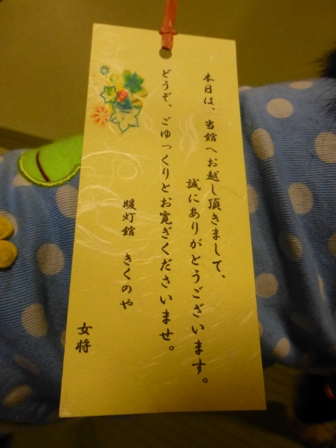 本日は、当館へお越し頂きまして、
誠にありがとうございます。
どうぞ、ごゆっくりとお寛ぎくださいませ。
暖灯館 きくのや
女将